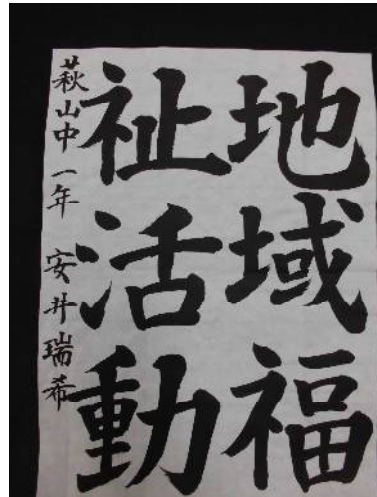 地域福
祉活動
萩山中一年 安井瑞希